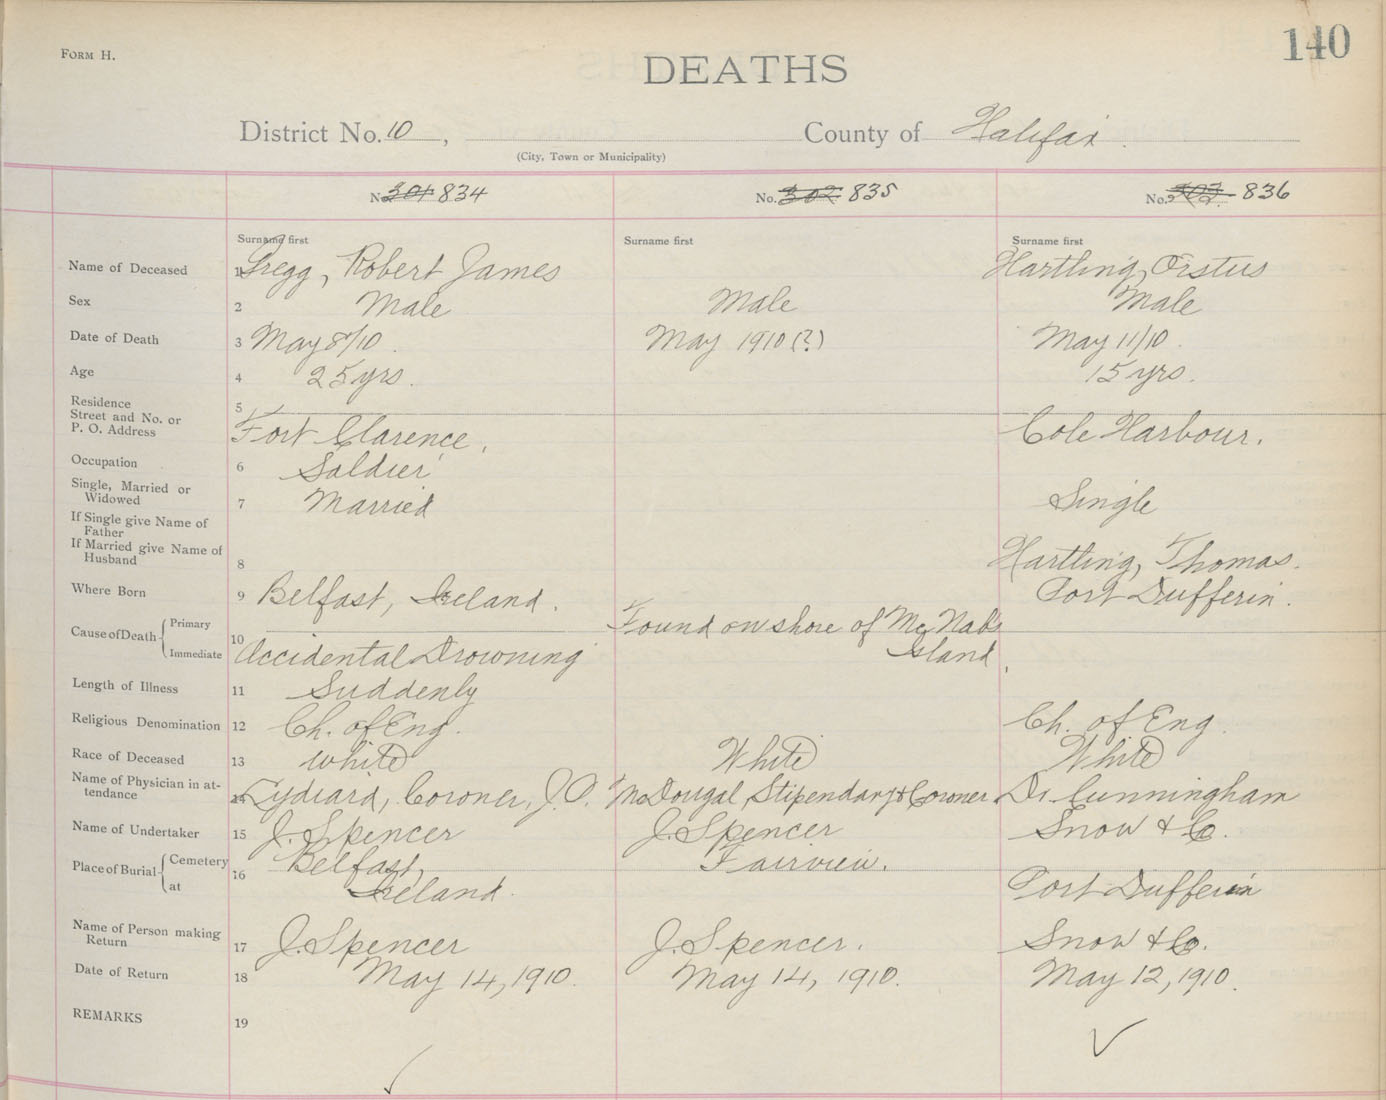 FORM H.
140
DEATHS
District No. 10 , County of Halifax.
(City, Town or Municipality)
No. 301 834 No. 302 835 No. 303 836
Surname first Surname first Surname first
Name of Deceased 1 Gregg, Robert James Hartling, Orstus
Sex 2 Male Male Male
Date of Death 3 May 8/10. May 1910 (?) May 11/10.
Age 4 25 yrs. 15 yrs.
Residence 5
Street and No. or
P. O. Address Fort Clarence. Cole Harbour.
Occupation 6 Soldier
Single, Married or
Widowed 7 Married Single
If Single give Name of
Father
If Married give Name of
Husband 8 Hartling, Thomas.
Where Born 9 Belfast, Ireland. Port Dufferin.
Cause of Death Primary Found on shore of McNab's
Immediate 10 Accidental Drowning Island.
Length of Illness 11 Suddenly
Religious Denomination 12 Ch. of Eng. Ch. of Eng.
Race of Deceased 13 White White White
Name of Physician in at-
tendance 14 Lydiard, Coroner, J.P. McDougal, Stipendary & Coroner. Dr Cunningham
Name of Undertaker 15 J. Spencer J. Spencer Snow & Co.
Place of Burial Cemetery 16 Belfast, Fairview.
at Ireland. Port Dufferin
Name of Person making
Return 17 J. Spencer J. Spencer. Snow & Co.
Date of Return 18 May 14, 1910. May 14, 1910. May 12, 1910.
REMARKS 19